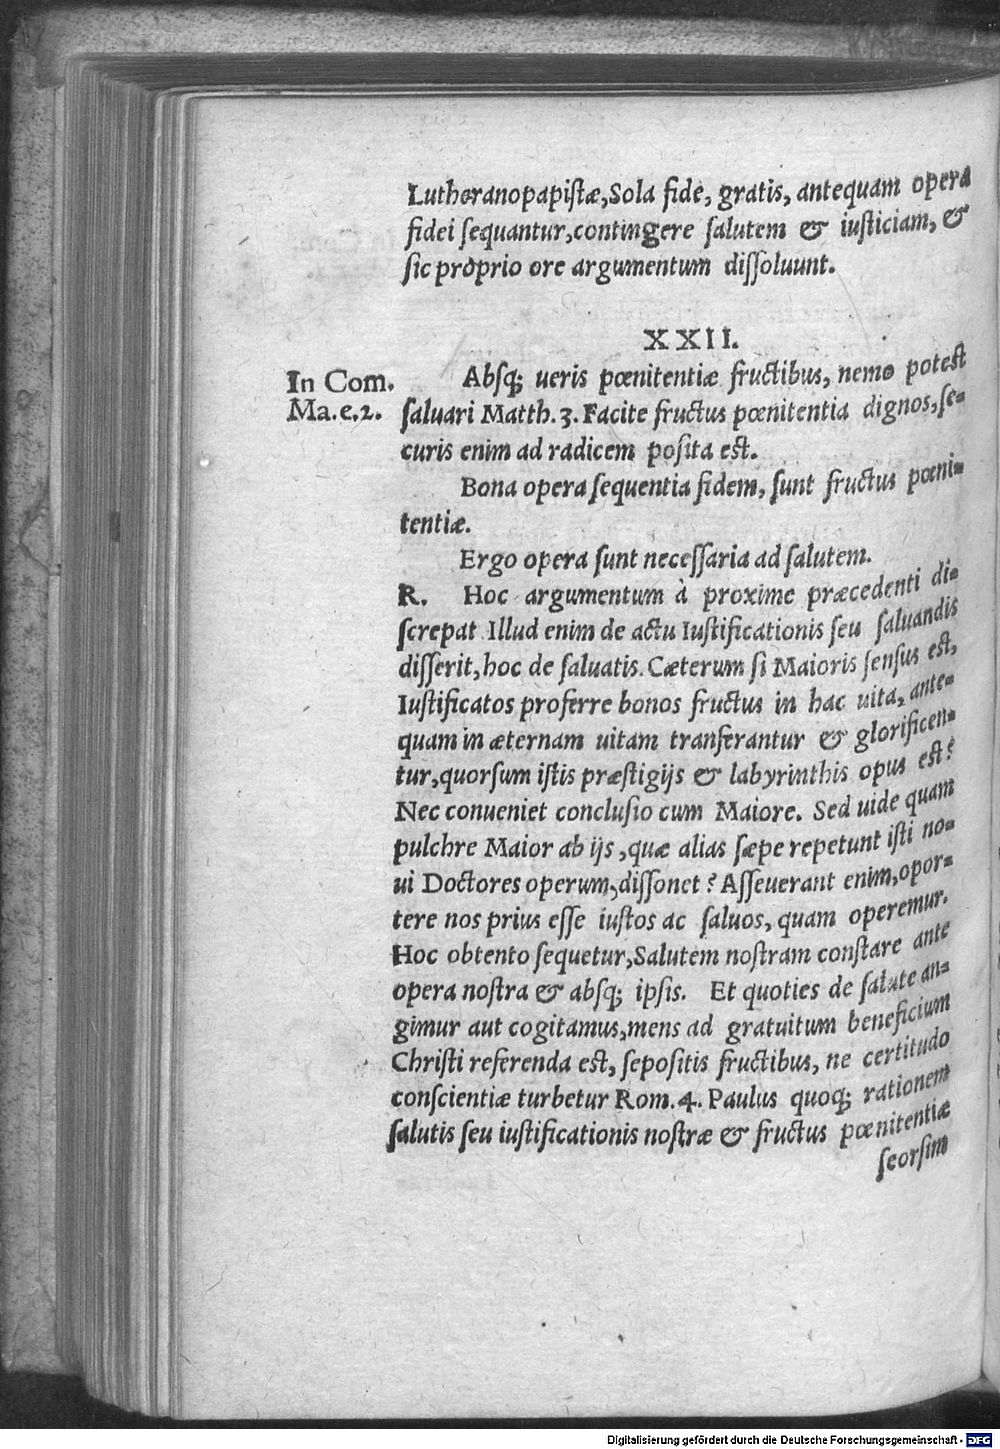 Lutheranopapiſtæ, Sola fide, gratis, antequam opera
fidei ſequantur, contingere ſalutem & iuſticiam, &
ſic proprio ore argumentum diſſoluunt.
XXII.
In Com.
Ma.e.2.
Abſq; ueris pœnitentiæ fructibus, nemo potest
ſaluari Matth. 3. Facite fructus pœnitentia dignos, ſe-
curis enim ad radicem poſita est.
Bona opera ſequentia fidem, ſunt fructus pœni-
tentiæ.
Ergo opera ſunt neceſſaria ad ſalutem.
R. Hoc argumentum à proxime præcedenti di-
ſcrepat. Illud enim de actu Iuſtificationis ſeu ſaluandis
diſſerit, hoc de ſaluatis. Cæterum ſi Maioris ſenſus est,
Iuſtificatos proferre bonos fructus in hac uita, ante-
quam in æternam uitam tranſerantur & glorificen-
tur, quorſum iſtis præſtigijs & labyrinthis opus est?
Nec conueniet concluſio cum Maiore. Sed uide quam
pulchre Maior ab ijs, quæ alias ſæpe repetunt iſti no-
ui Doctores operum, diſſonet? Aſſeuerant enim, opor-
tere nos prius eſſe iuſtos ac ſaluos, quam operemur.
Hoc obtento ſequetur, Salutem noſtram conſtare ante
opera noſtra & abſq; ipſis. Et quoties de ſalute an-
gimur aut cogitamus, mens ad gratuitum beneficium
Chriſti referenda est, ſepoſitis fructibus, ne certitudo
conſcientiæ turbetur Rom. 4. Paulus quoq; rationem
ſalutis ſeu iuſtificationis noſtræ & fructus pœnitentiæ
ſeorſim
Digitalisierung gefördert durch die Deutsche Forschungsgemeinschaft - DFG